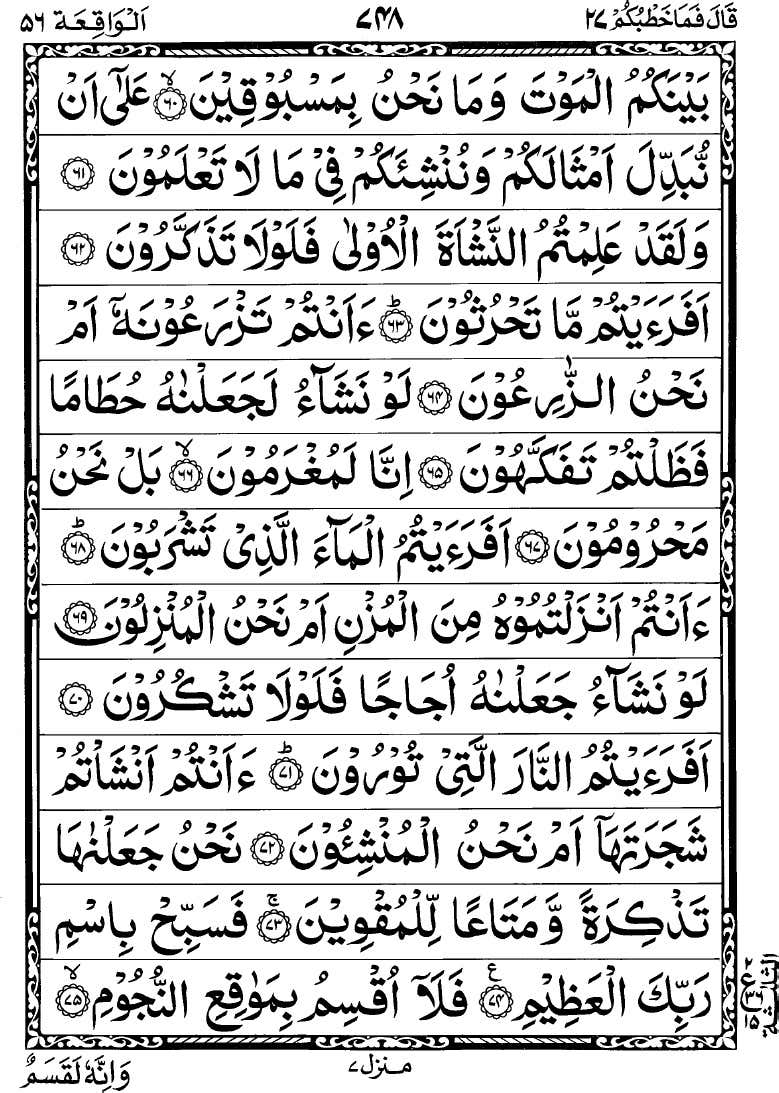 قَالَ فَمَا خَطْبُكُمْ ٢٧ ٧٤٨ اَلْوَاقِعَة ٥٦
بَيْنَكُمُ الْمَوْتَ وَمَا نَحْنُ بِمَسْبُوْقِيْنَ ۙ﴿٦٠﴾ عَلٰٓى اَنْ
نُّبَدِّلَ اَمْثَالَكُمْ وَنُنْشِئَكُمْ فِيْ مَا لَا تَعْلَمُوْنَ ﴿٦١﴾
وَلَقَدْ عَلِمْتُمُ النَّشْاَةَ الْاُوْلٰى فَلَوْلَا تَذَكَّرُوْنَ ﴿٦٢﴾
اَفَرَءَيْتُمْ مَّا تَحْرُثُوْنَ ؕ﴿٦٣﴾ ءَاَنْتُمْ تَزْرَعُوْنَهٗٓ اَمْ
نَحْنُ الزّٰرِعُوْنَ ﴿٦٤﴾ لَوْ نَشَآءُ لَجَعَلْنٰهُ حُطَامًا
فَظَلْتُمْ تَفَكَّهُوْنَ ﴿٦٥﴾ اِنَّا لَمُغْرَمُوْنَ ۙ﴿٦٦﴾ بَلْ نَحْنُ
مَحْرُوْمُوْنَ ﴿٦٧﴾ اَفَرَءَيْتُمُ الْمَآءَ الَّذِيْ تَشْرَبُوْنَ ؕ﴿٦٨﴾
ءَاَنْتُمْ اَنْزَلْتُمُوْهُ مِنَ الْمُزْنِ اَمْ نَحْنُ الْمُنْزِلُوْنَ ﴿٦٩﴾
لَوْ نَشَآءُ جَعَلْنٰهُ اُجَاجًا فَلَوْلَا تَشْكُرُوْنَ ﴿٧٠﴾
اَفَرَءَيْتُمُ النَّارَ الَّتِيْ تُوْرُوْنَ ؕ﴿٧١﴾ ءَاَنْتُمْ اَنْشَاْتُمْ
شَجَرَتَهَآ اَمْ نَحْنُ الْمُنْشِئُوْنَ ﴿٧٢﴾ نَحْنُ جَعَلْنٰهَا
تَذْكِرَةً وَّمَتَاعًا لِّلْمُقْوِيْنَ ۚ﴿٧٣﴾ فَسَبِّحْ بِاسْمِ
رَبِّكَ الْعَظِيْمِ ﴿٧٤﴾ ع فَلَآ اُقْسِمُ بِمَوٰقِعِ النُّجُوْمِ ۙ﴿٧٥﴾
منزل ٧
وَاِنَّهٗ لَقَسَمٌ